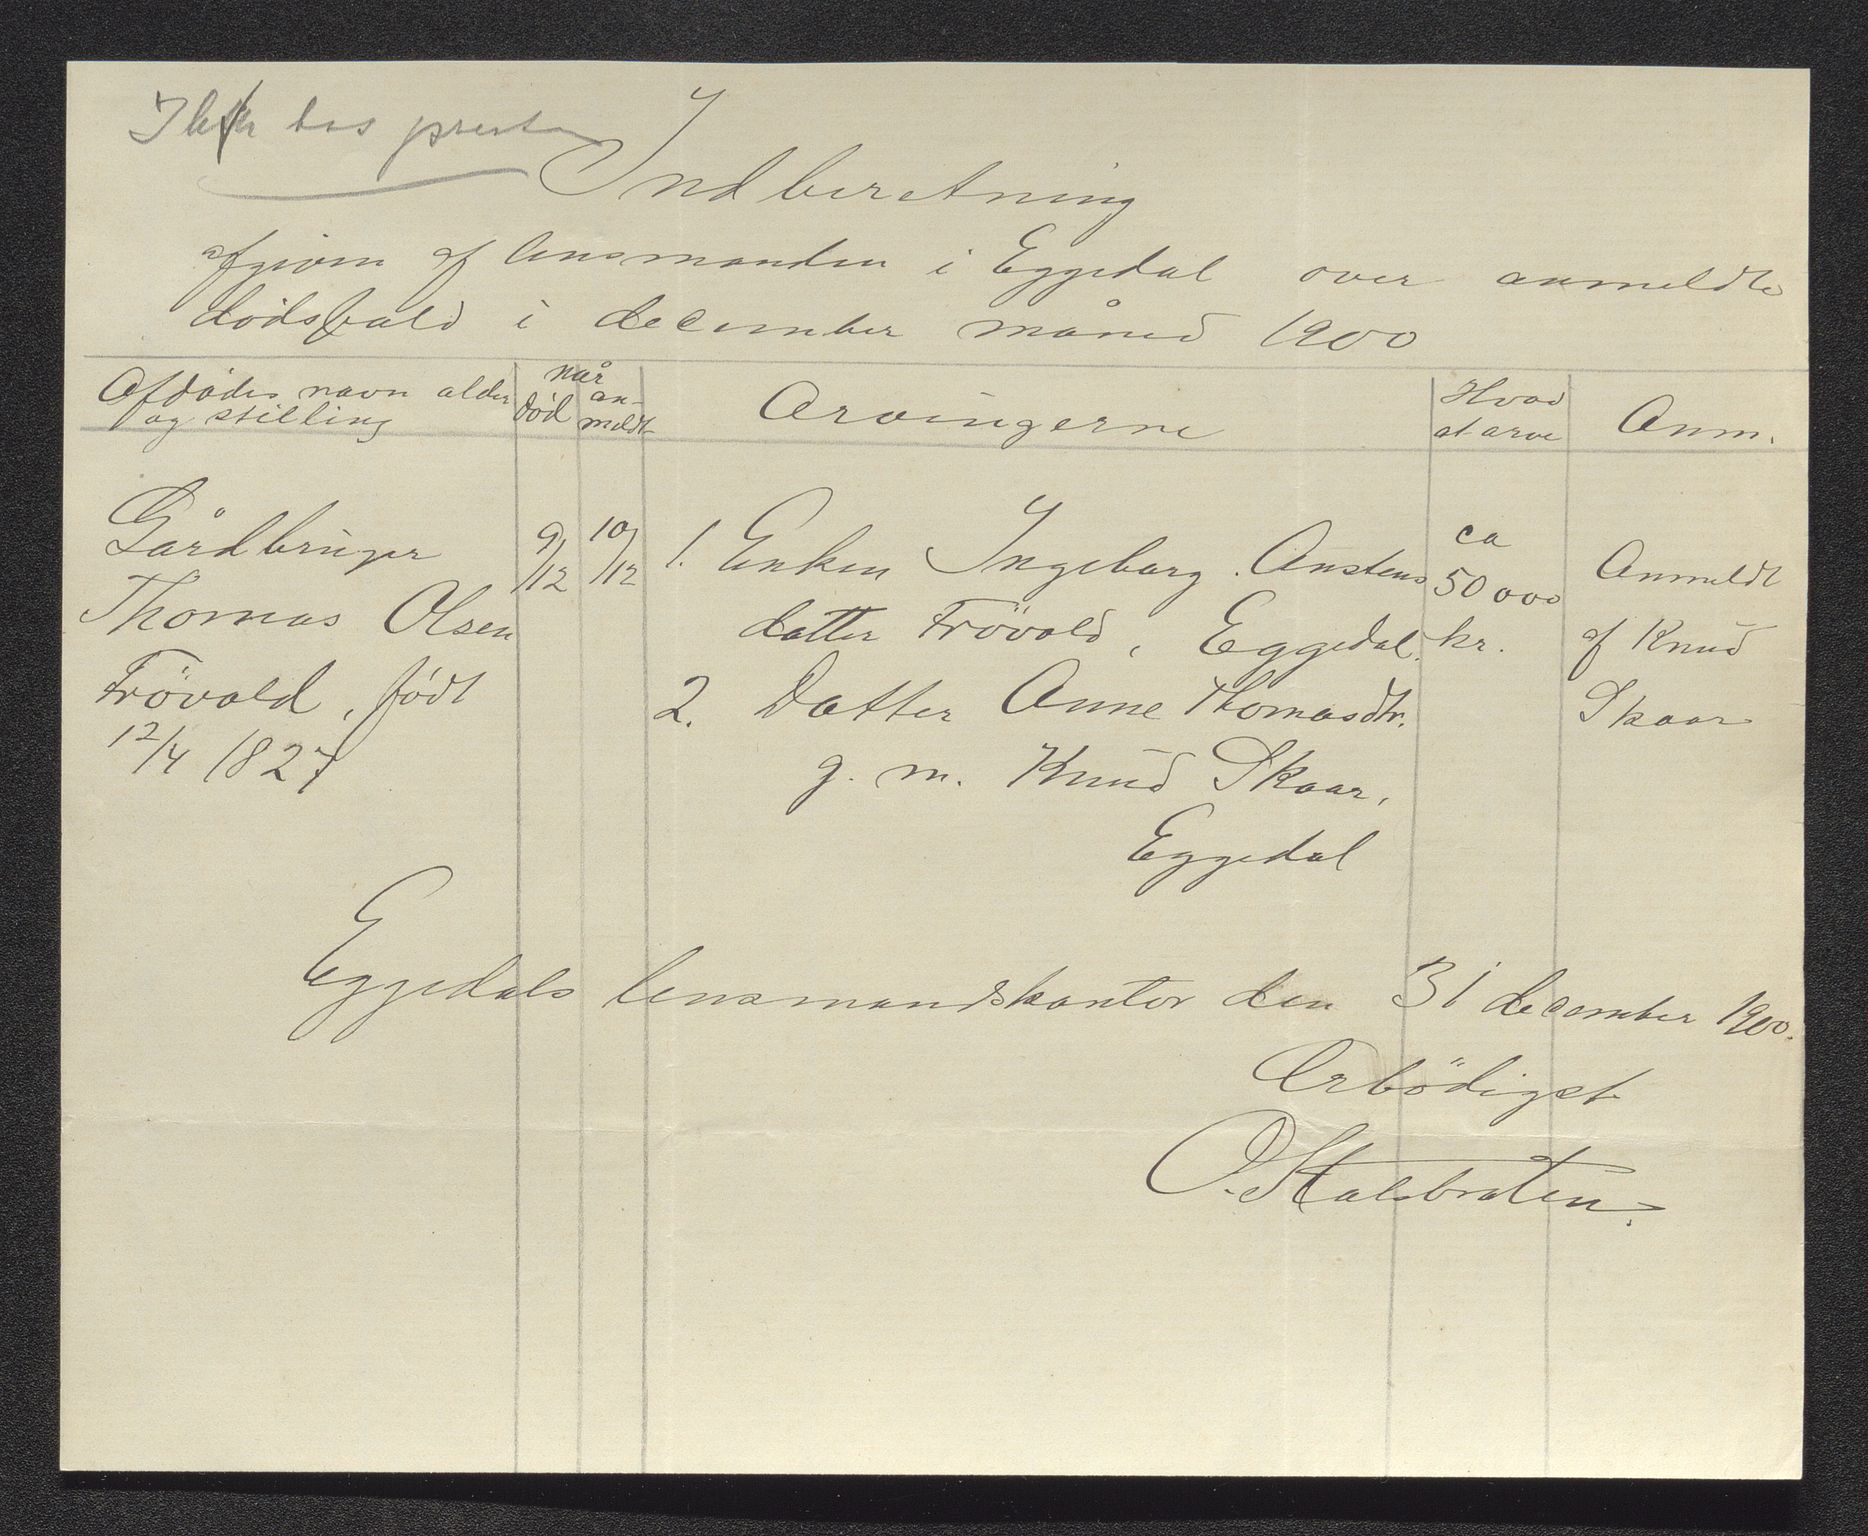 hos presten
Indberetning
afgiven af lensmanden i Eggedal over anmeldte
dödsfald i december måned 1900
Afdödes navn alder og stilling | når död | anmeldt | Arvingerne | Hvad at arve | Anm.
Gårdbruger | 9/12 | 10/12 | 1. Enken Ingeborg Anstens | ca 50000 | Anmeldt
Thomas Olsen | datter Frövold, Eggedal. | kr. | af Knud
Frövold, födt | 2. Datter Anne Thomasdtr. | Skaar
12/4 1827 | g. m. Knud Skaar,
Eggedal
Eggedals lensmandskontor den 31 december 1900.
Ærbödigst
O. Kalsbraten.